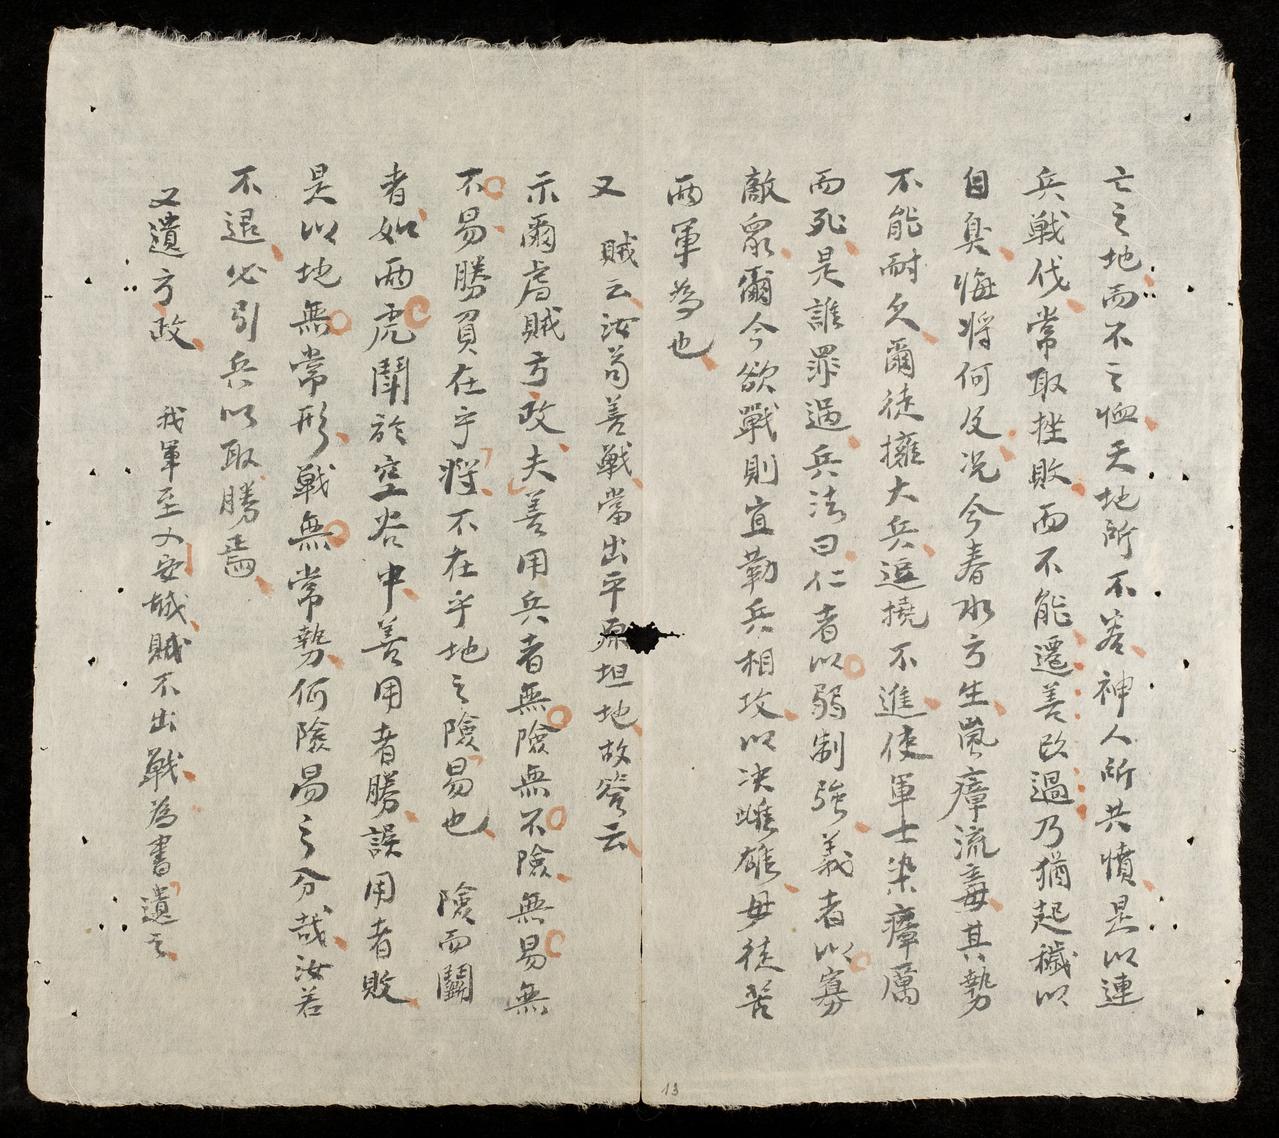 亡之地而不之恤天地所不容神人所共憤是以連
兵戦伐常取挫敗而不能遷善改過乃猶起穢以
自臭悔将何及况今春水方生嵐瘴流毒其勢
不能耐久爾徒擁大兵逗撓不進使軍士染瘴厲
而死是誰罪過兵法曰仁者以弱制強義者以寡
敵衆爾今欲戰則宜勒兵相攻以决雌雄毋徒苦
両軍為也
又 賊云汝苟善戦當出平原坦地故答云
示爾虐賊方政夫善用兵者無險無不險無易無
不易勝負在乎将不在乎地之險易也 險而鬪
者如両虎鬪於空谷中善用者勝誤用者敗
是以地無常形戦無常勢何險易之分哉汝若
不退必引兵以取勝焉
又遺方政 我軍至乂安城賊不出戦為書遺之
13